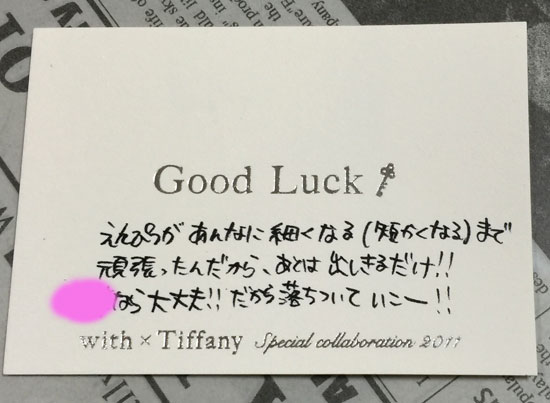 Good Luck
えんぴつがあんなに細くなる(短かくなる)まで
頑張ったんだから、あとは出しきるだけ!!
なら大丈夫!!だから落ちついていこー!!
with × Tiffany Special collaboration 2011